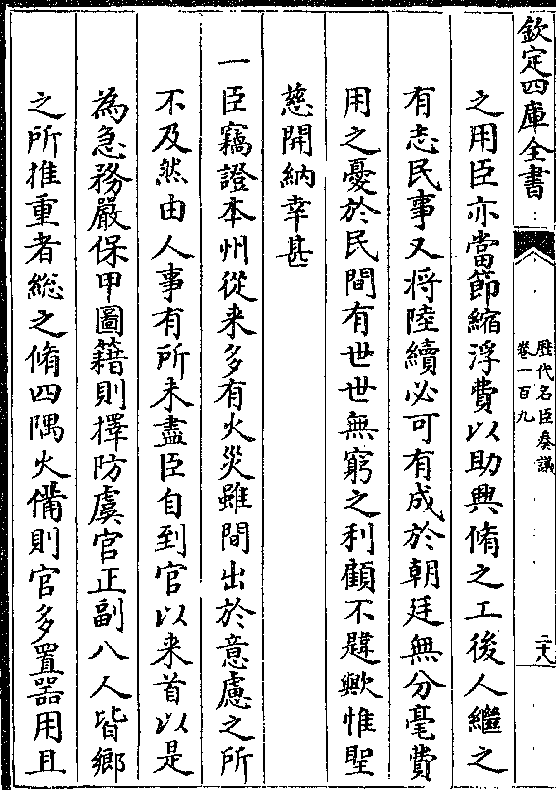 欽定四庫全書
歷代名臣奏議
卷一百九
二十八
之用臣亦當節縮浮費以助興脩之工後人繼之
有志民事又將陸續必可有成於朝廷無分毫費
用之憂於民間有世世無窮之利顧不韙歟惟聖
慈開納幸甚
一臣竊證本州從来多有火災雖間出於意慮之所
不及然由人事有所未盡臣自到官以来首以是
為急務嚴保甲圖籍則擇防虞官正副八人皆鄉
之所推重者緫之脩四隅火備則官多置器用且